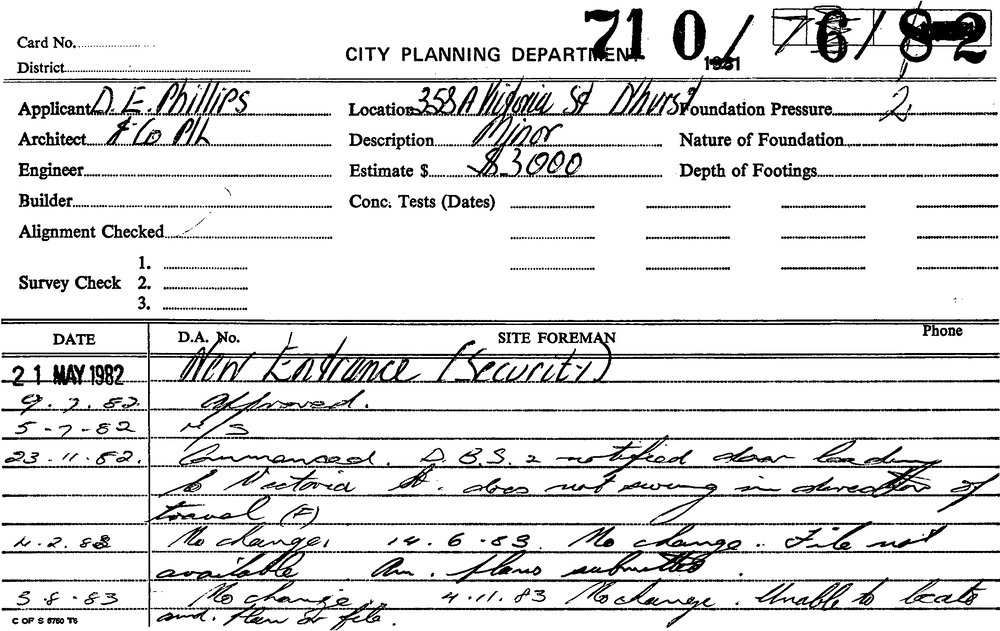 710/76/82
Card No.
CITY PLANNING DEPARTMENT
1981
District
Applicant D. E. Phillips
Location 358A Victoria St D'hurst
Foundation Pressure 2
Architect & Co P/L
Description Minor
Nature of Foundation
Engineer
Estimate $ $3000
Depth of Footings
Builder
Conc. Tests (Dates)
Alignment Checked
Survey Check
1.
2.
3.
DATE D.A. No. SITE FOREMAN Phone
21 MAY 1982 New Entrance (Security)
9.7.82 Approved.
5-7-82 N/S
23.11.82. Commenced. D.B.S. 2 notified door leading
to Victoria St. does not swing in direction of
travel (F)
4.2.83 No change. 14.6.83. No change. File not
available. Am. plans submitted.
3-8-83 No change. 4.11.83 No change. Unable to locate
amd. plan or file.
C OF S 6750 T6